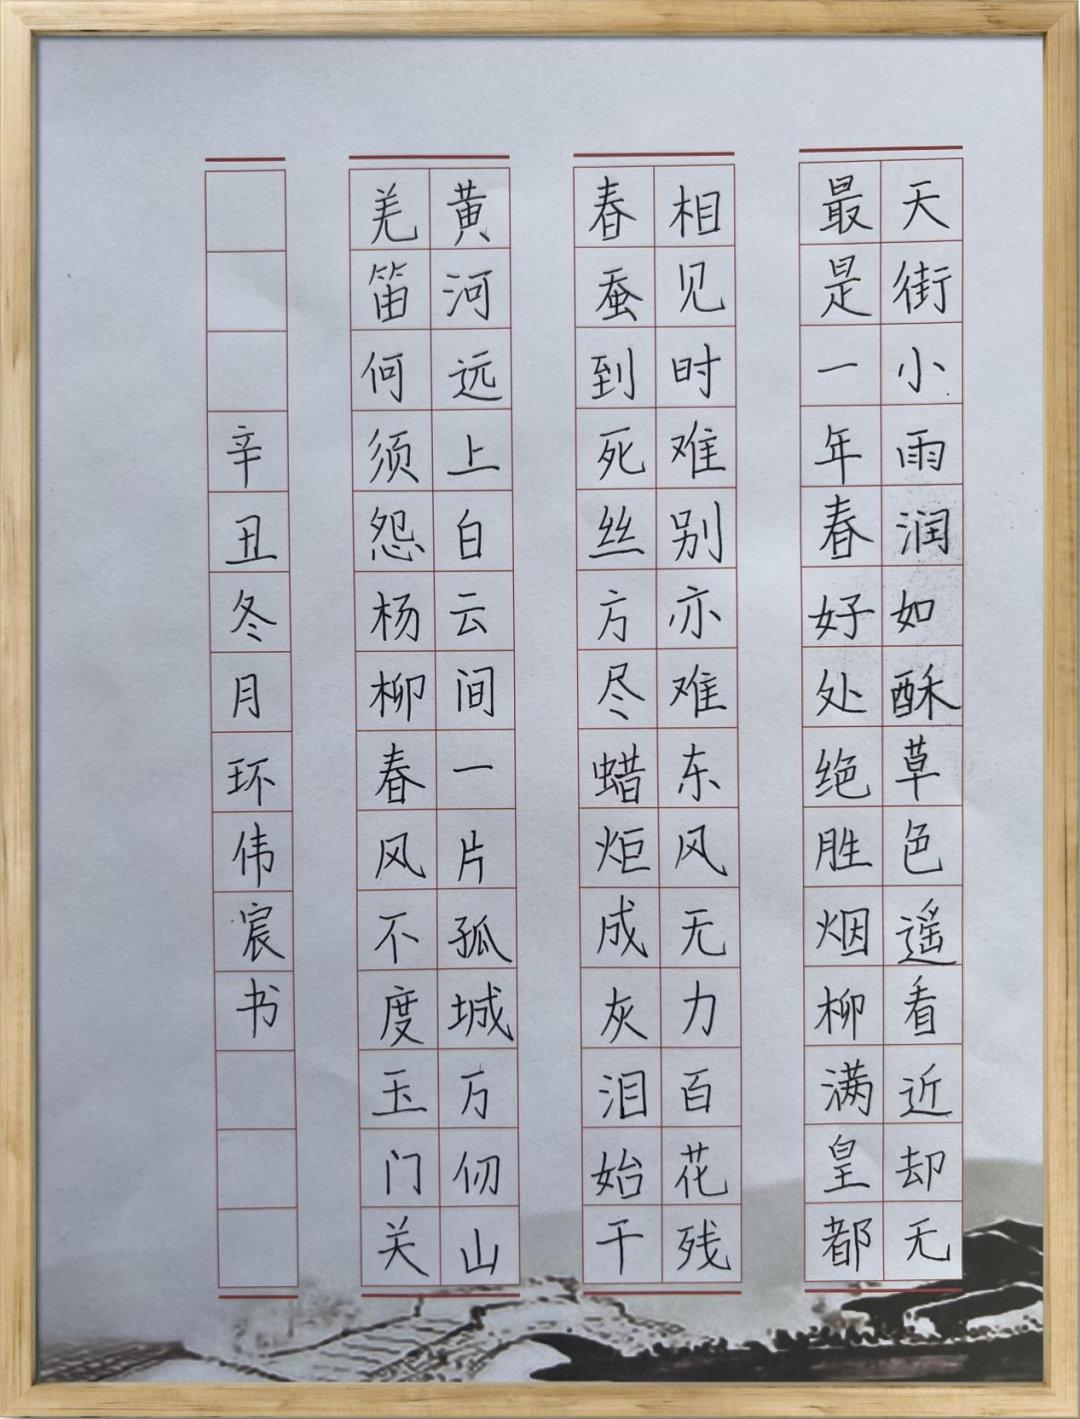 天街小雨润如酥草色遥看近却无
最是一年春好处绝胜烟柳满皇都
相见时难别亦难东风无力百花残
春蚕到死丝方尽蜡炬成灰泪始干
黄河远上白云间一片孤城万仞山
羌笛何须怨杨柳春风不度玉门关
辛丑冬月环伟宸书